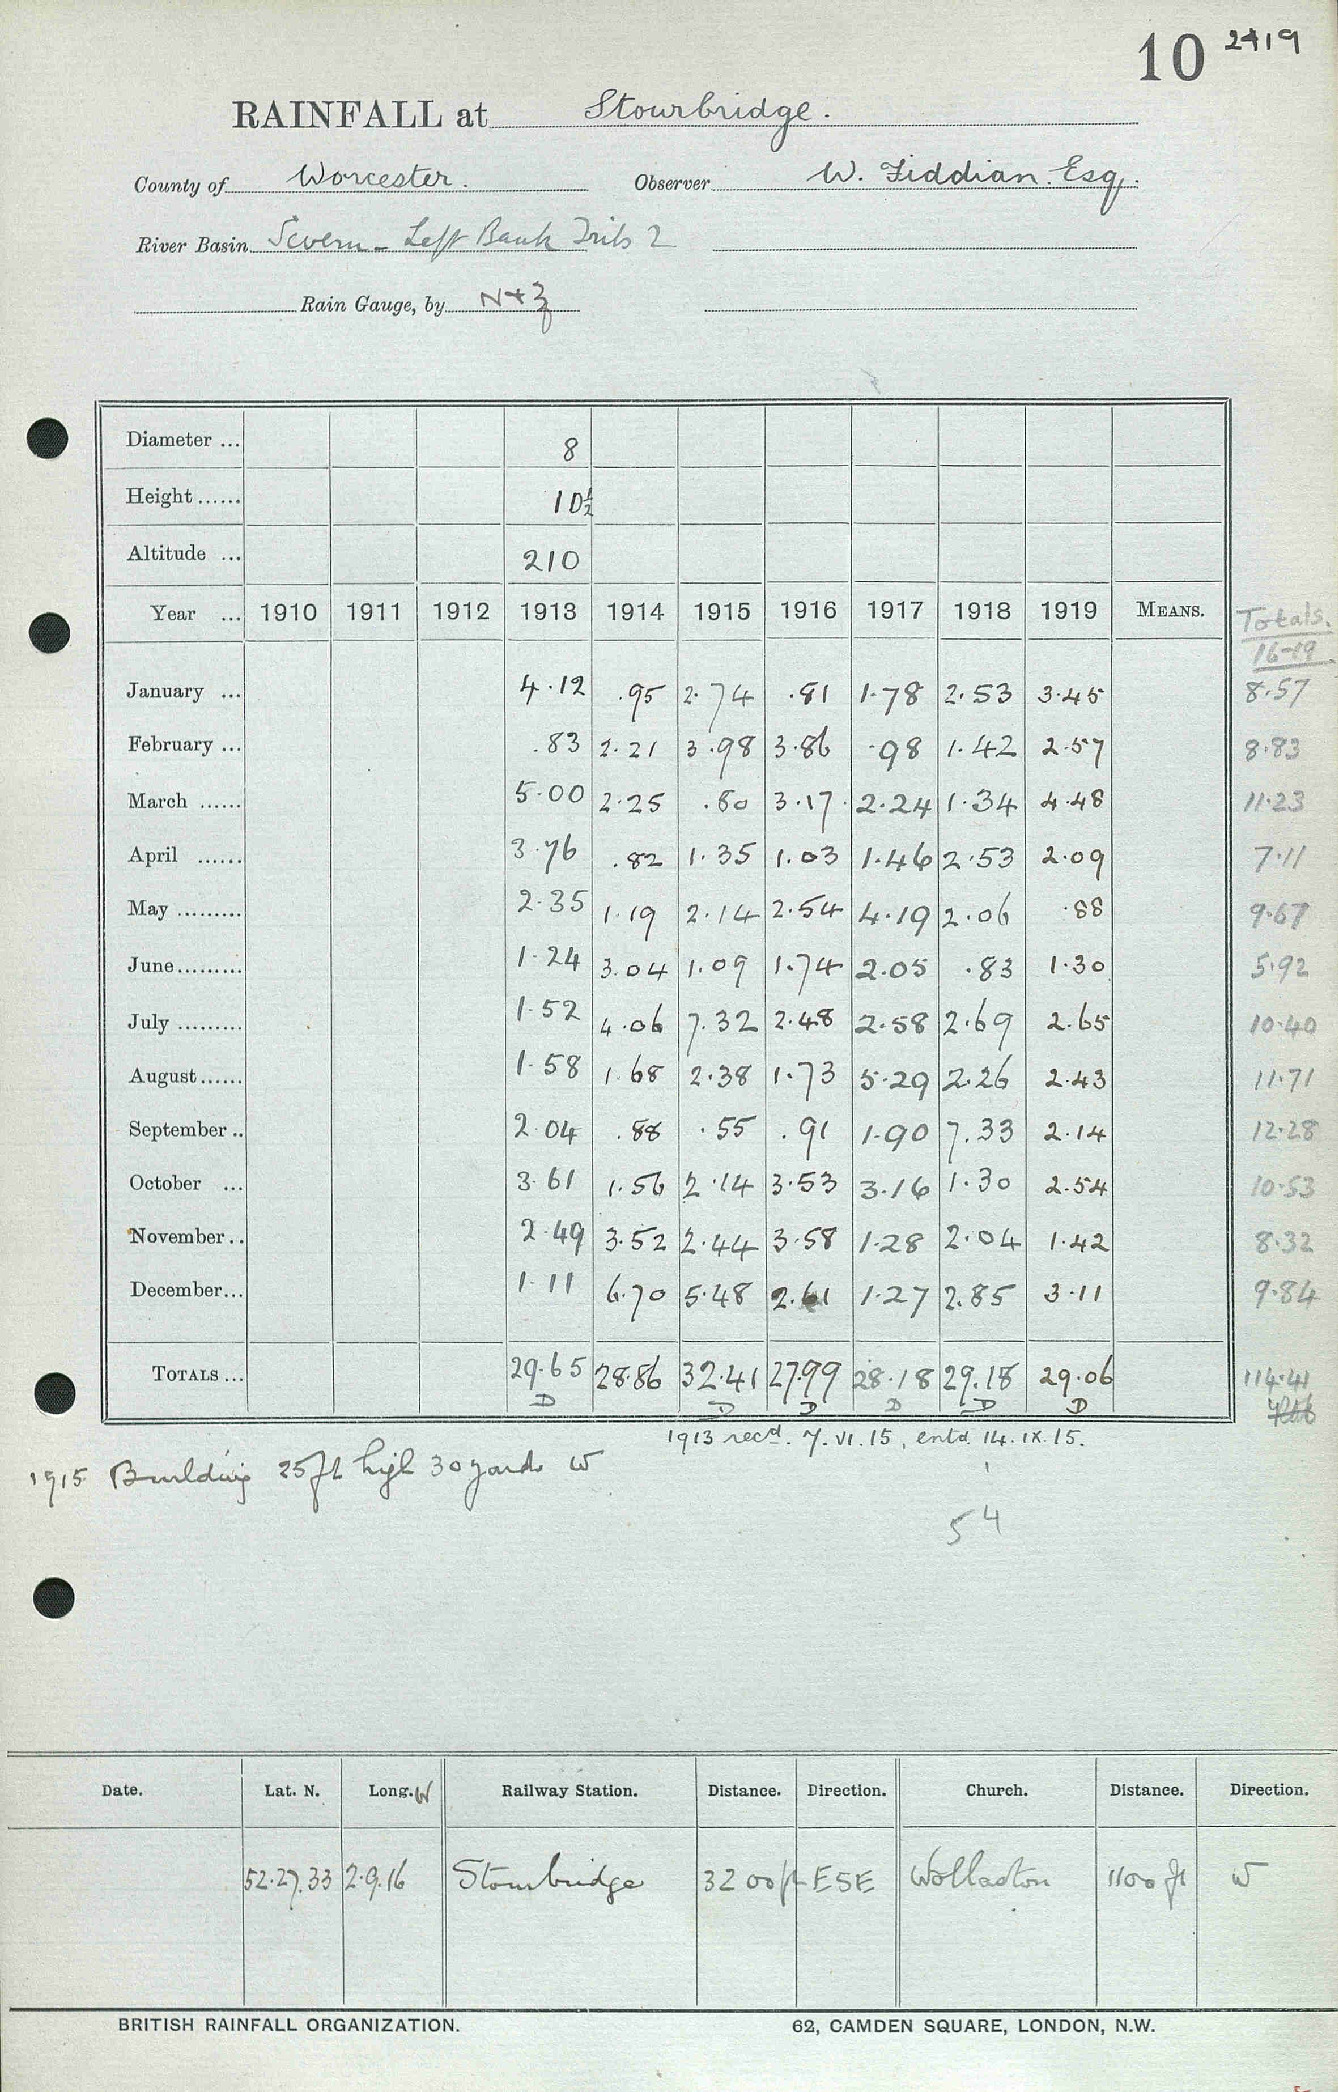 10 2419
RAINFALL at Stourbridge.
County of Worcester. Observer W. Fiddian. Esq.
River Basin Severn - Left Bank Tribs 2
Rain Gauge, by N+Z
Diameter ... 8
Height ...... 10½
Altitude ... 210
Year ... 1910 1911 1912 1913 1914 1915 1916 1917 1918 1919 MEANS. Totals.
16-19
January ... 4.12 .95 2.74 .81 1.78 2.53 3.45 8.57
February ... .83 2.21 3.98 3.86 .98 1.42 2.57 8.83
March ...... 5.00 2.25 .80 3.17 2.24 1.34 4.48 11.23
April ...... 3.76 .82 1.35 1.03 1.46 2.53 2.09 7.11
May ......... 2.35 1.19 2.14 2.54 4.19 2.06 .88 9.67
June......... 1.24 3.04 1.09 1.74 2.05 .83 1.30 5.92
July ......... 1.52 4.06 7.32 2.48 2.58 2.69 2.65 10.40
August...... 1.58 1.68 2.38 1.73 5.29 2.26 2.43 11.71
September .. 2.04 .88 .55 .91 1.90 7.33 2.14 12.28
October ... 3.61 1.56 2.14 3.53 3.16 1.30 2.54 10.53
November .. 2.49 3.52 2.44 3.58 1.28 2.04 1.42 8.32
December... 1.11 6.70 5.48 2.61 1.27 2.85 3.11 9.84
TOTALS ... 29.65 28.86 32.41 27.99 28.18 29.18 29.06 114.41
D D D D D D
1913 recd. 7.VI.15, entd. 14.IX.15.
1915 Building 25ft high 30 yards W
54
Date. Lat. N. Long. W Railway Station. Distance. Direction. Church. Distance. Direction.
52.27.33 2.9.16 Stourbridge 3200ft ESE Wollaston 1100 ft W
BRITISH RAINFALL ORGANIZATION. 62, CAMDEN SQUARE, LONDON, N.W.